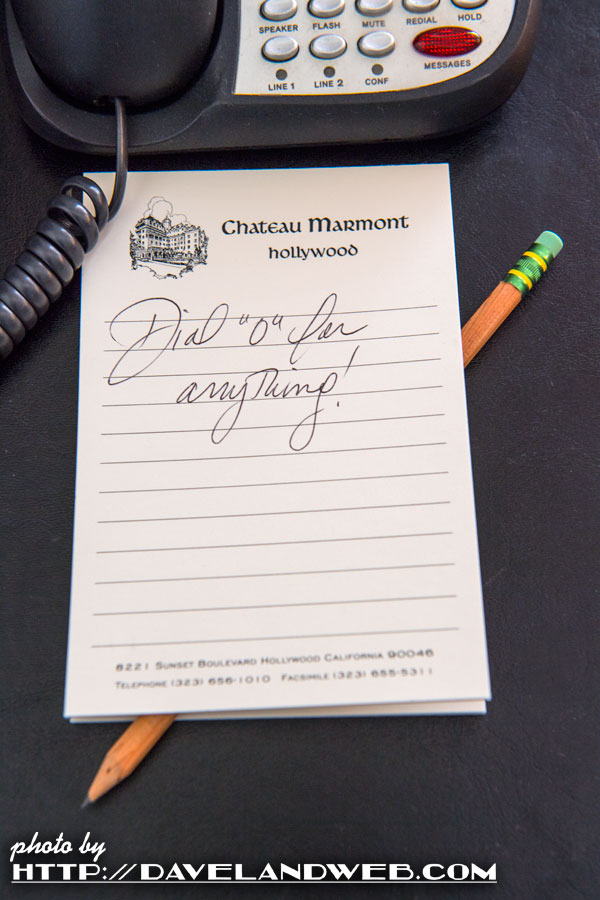 SPEAKER FLASH MUTE REDIAL HOLD
LINE 1 LINE 2 CONF MESSAGES
Chateau Marmont
hollywood
Dial "O" for
anything!
8221 Sunset Boulevard Hollywood California 90046
Telephone (323) 656-1010 Facsimile (323) 655-5311
photo by
HTTP://DAVELANDWEB.COM